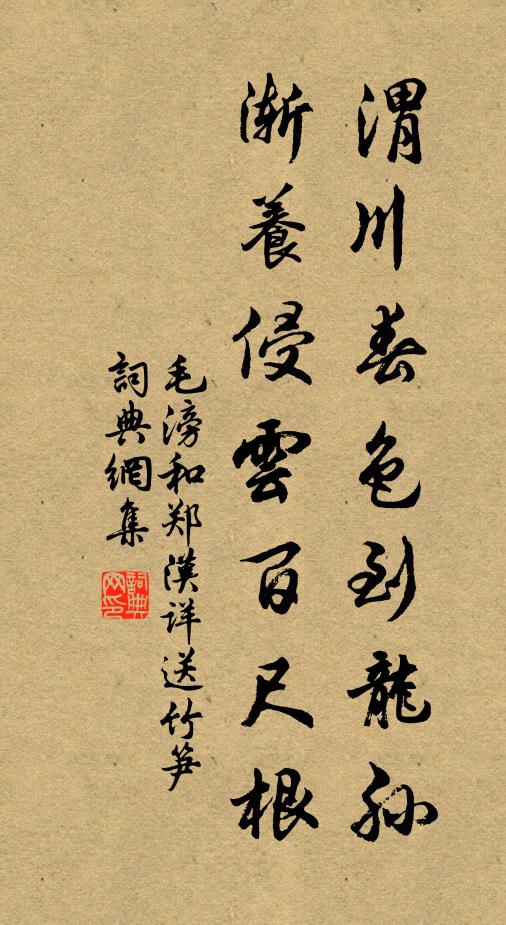 渭川春色到龍孫
漸養侵雲百尺根
毛滂和郑漢详送竹笋
詞典網集
詞典网印